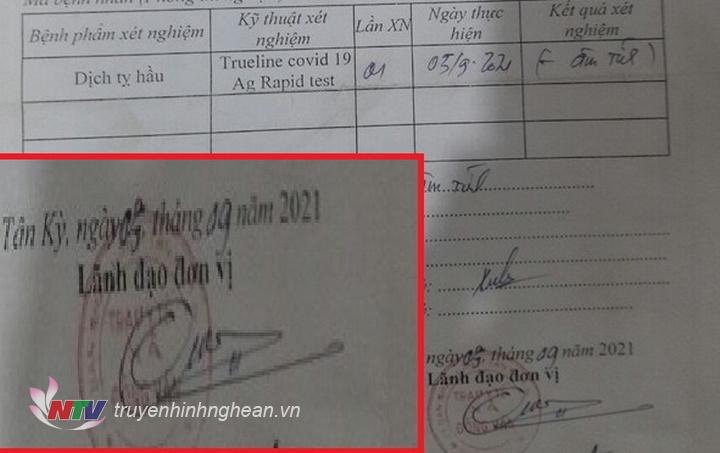 Bệnh phẩm xét nghiệm
Kỹ thuật xét nghiệm
Lần XN
Ngày thực hiện
Kết quả xét nghiệm
Dịch tỵ hầu
Trueline covid 19
Ag Rapid test
01
05/9.2021
(- âm tính)
âm tính
Tân Kỳ, ngày 05, tháng 09 năm 2021
Lãnh đạo đơn vị
TRẠM Y TẾ
ngày 05, tháng 09 năm 2021
Lãnh đạo đơn vị
TRẠM Y TẾ
NTV truyenhinhnghean.vn